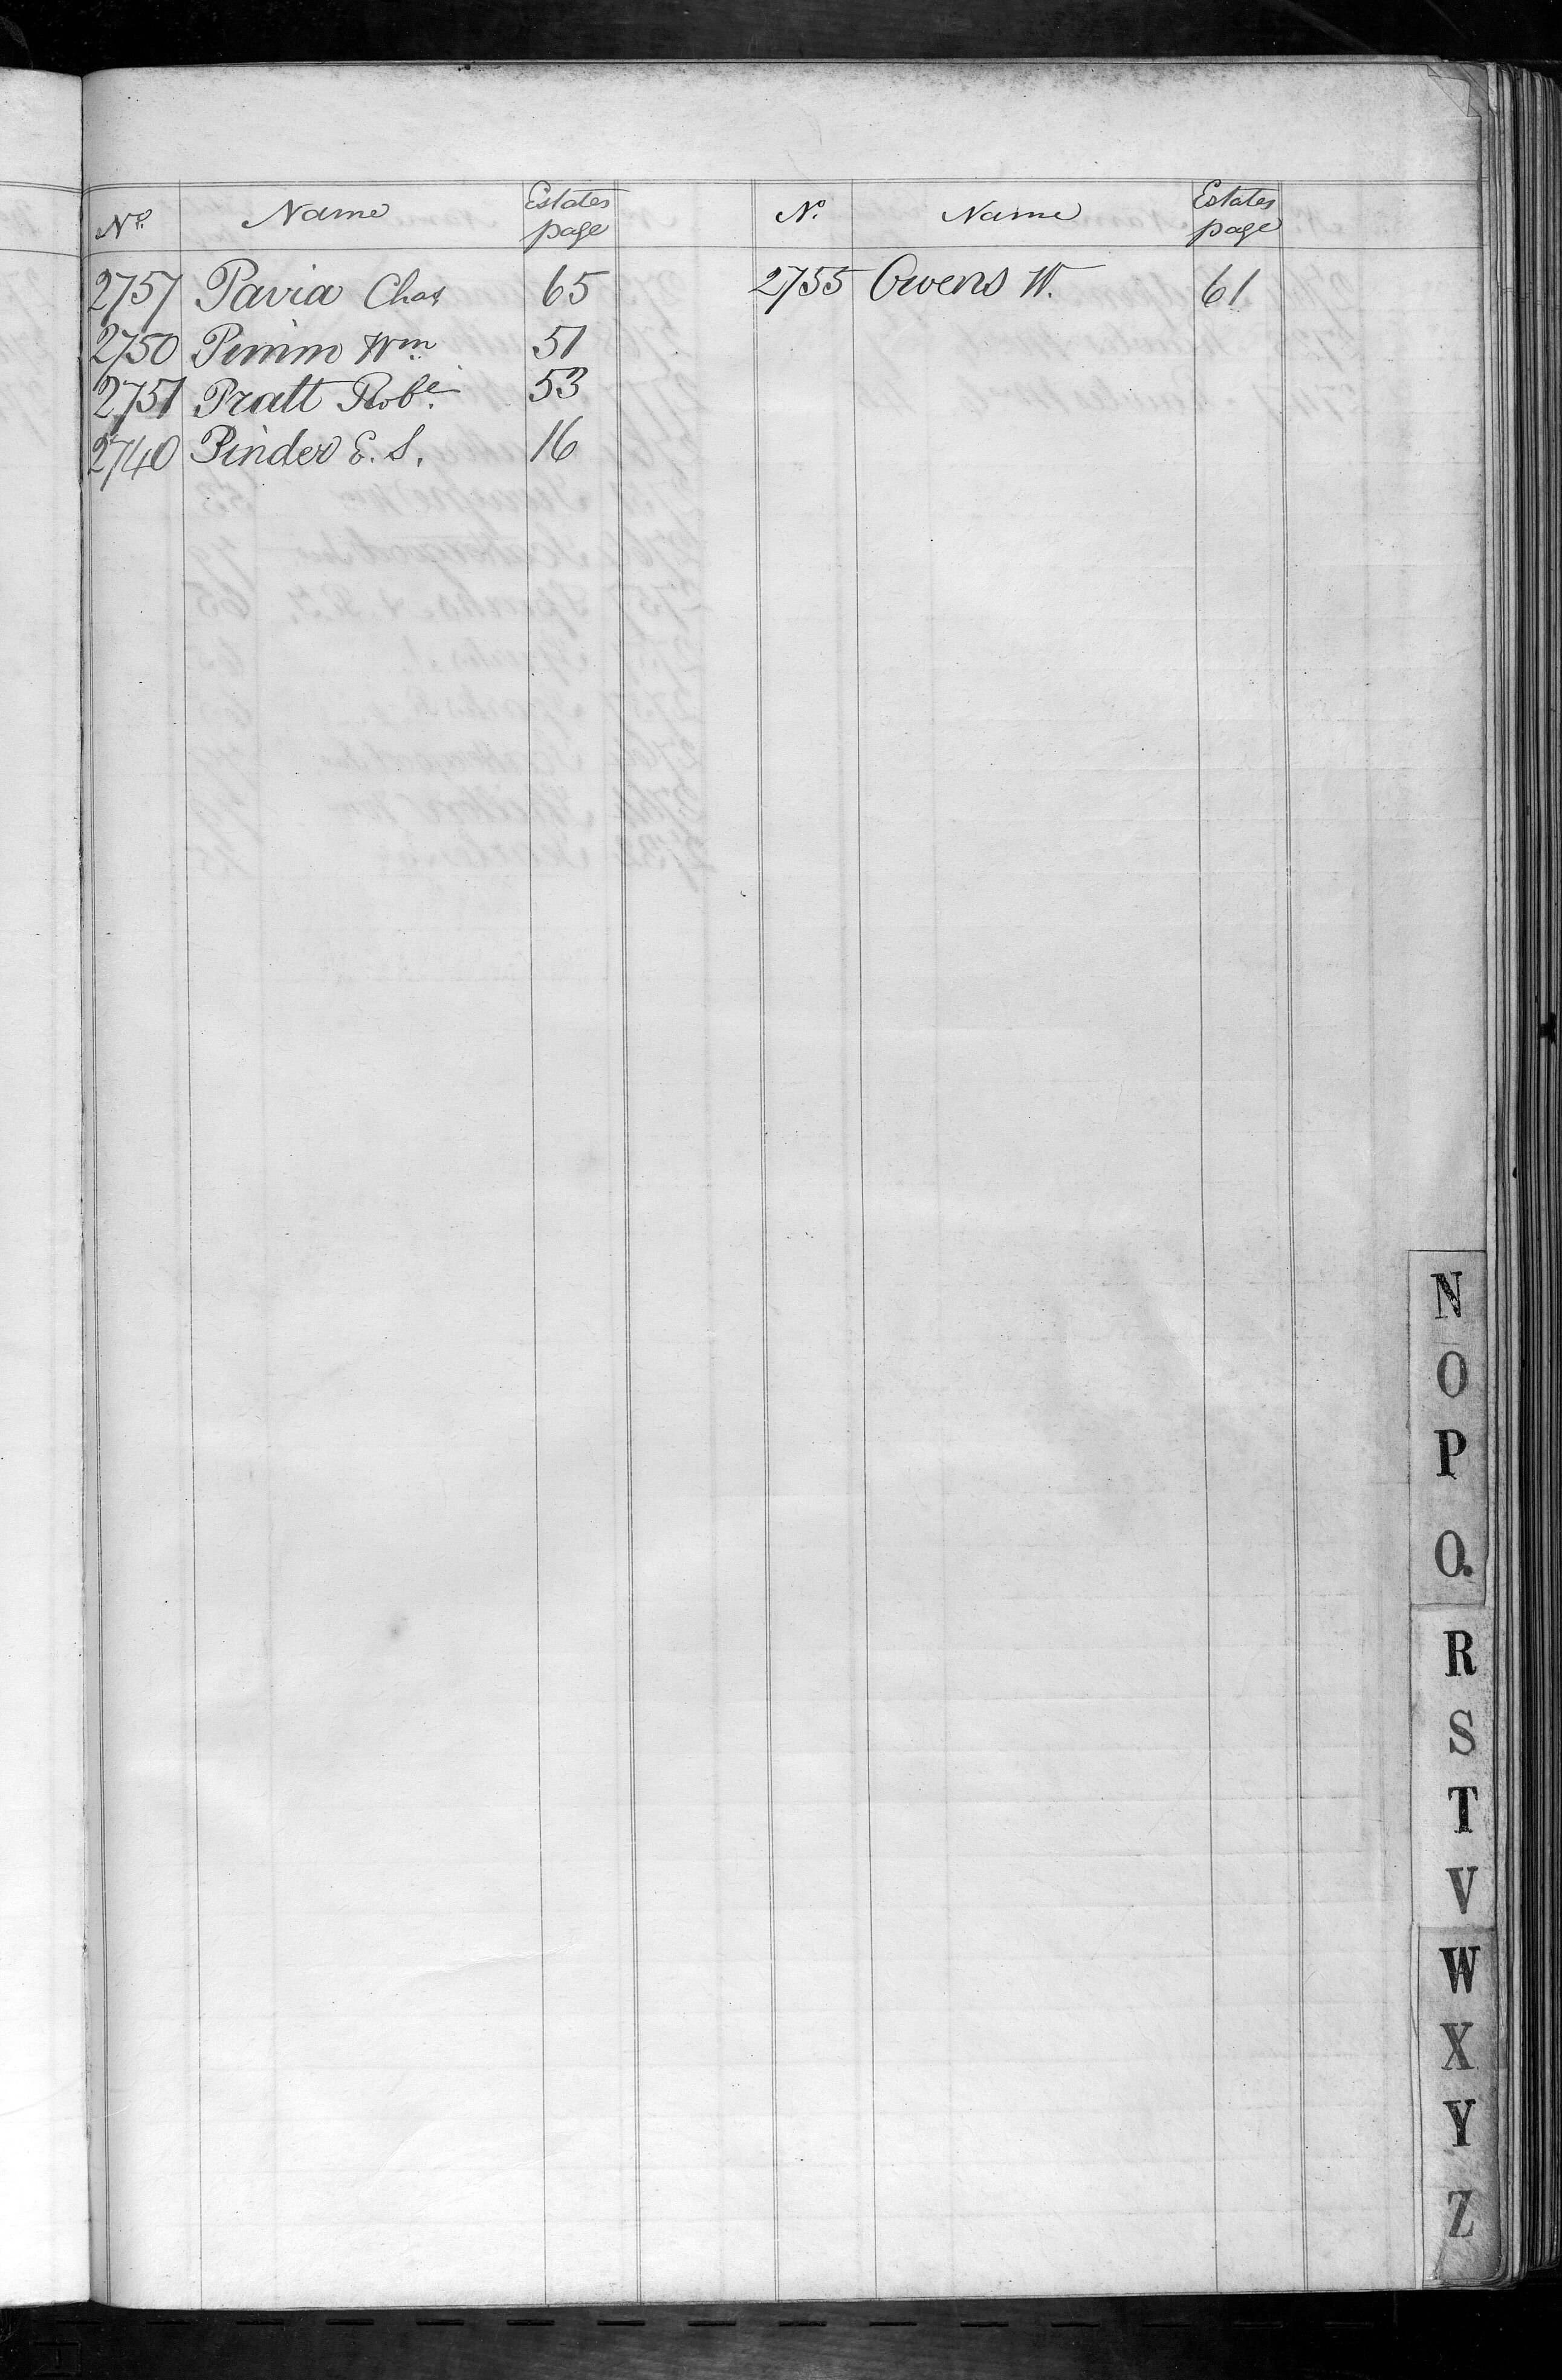 No. Name Estates page No. Name Estates page
2757 Pavia Chas 65 2755 Owens W. 61
2750 Pimm Wm 51
2751 Pratt Robt. 53
2740 Pinder E. S. 16
N
O
P
Q
R
S
T
V
W
X
Y
Z